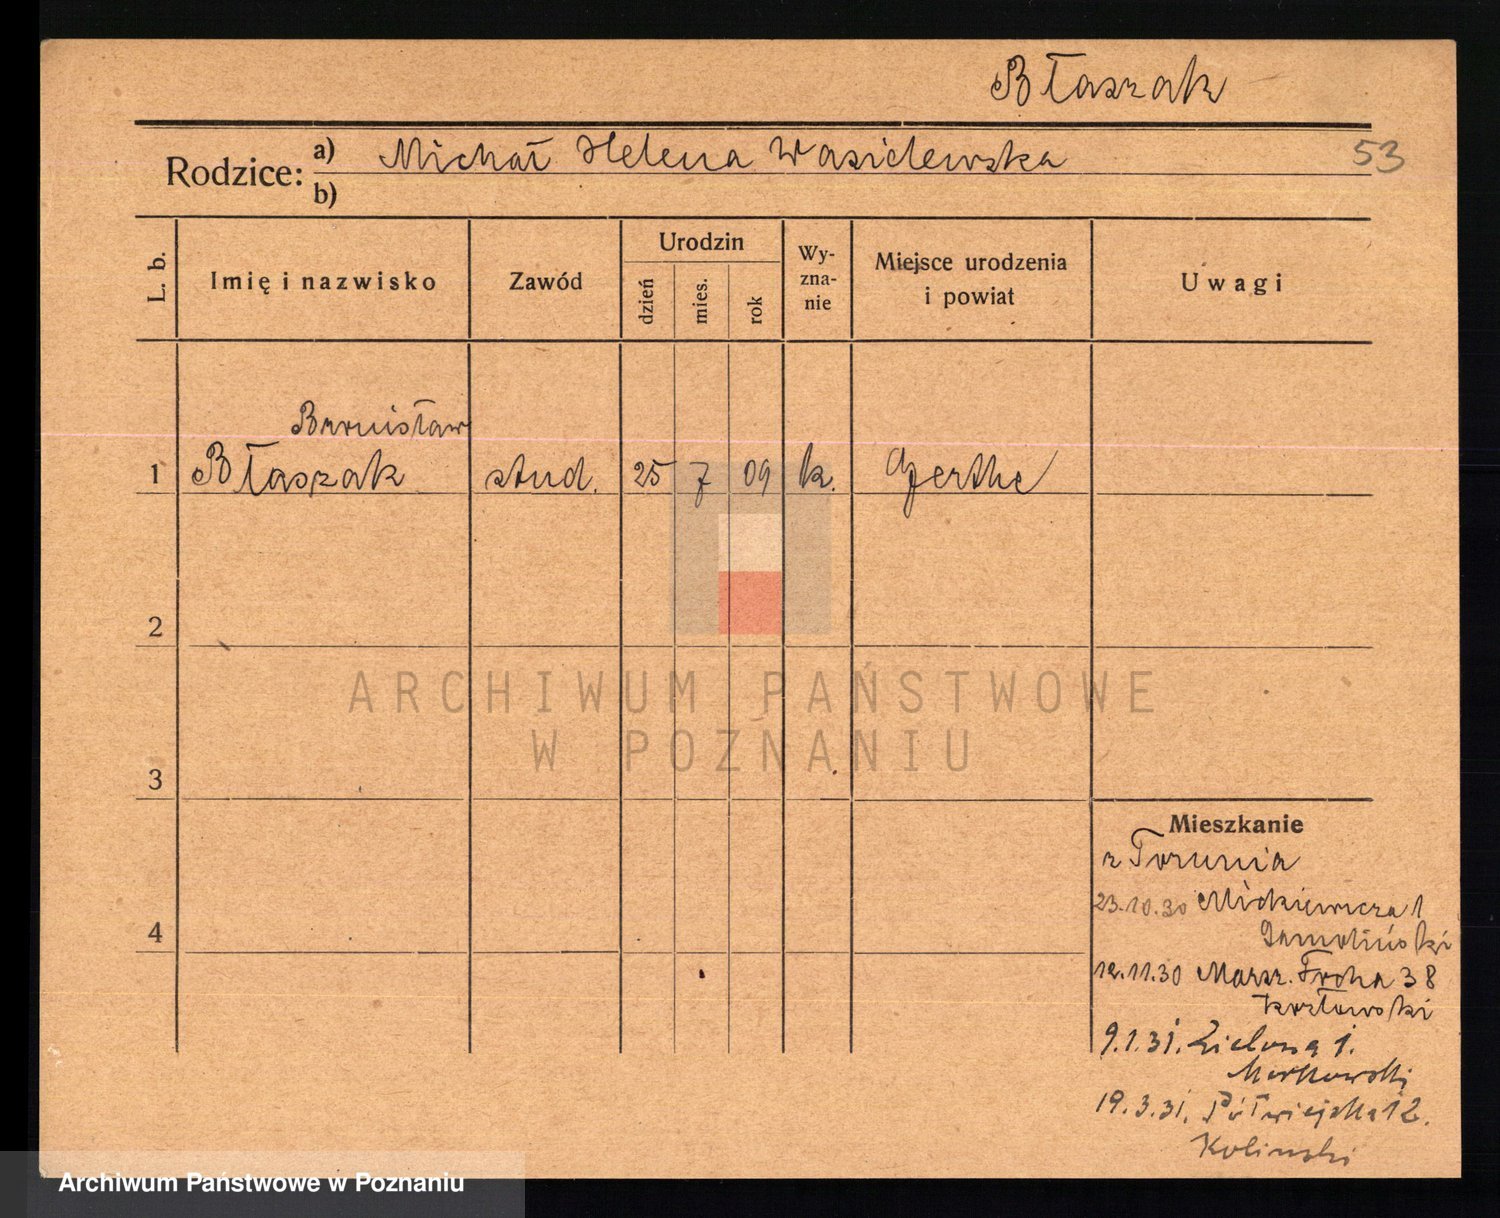 Błaszak
Rodzice: a) Michał Helena Wasielewska
53
b)
L. b.
Imię i nazwisko
Zawód
Urodzin
dzień
mies.
rok
Wy-
zna-
nie
Miejsce urodzenia
i powiat
Uwagi
Bronisław
1 Błaszak stud. 25 7 09 k. Gerthe
2
ARCHIWUM PAŃSTWOWE
W POZNANIU
3
Mieszkanie
z Torunia
4
23.10.30 Mickiewicza 1
12.11.30 Marsz. Focha 38
Kozłowski
9.1.31. Zielona 1.
Markowski
19.3.31. Półwiejska 12.
Koliński
Archiwum Państwowe w Poznaniu